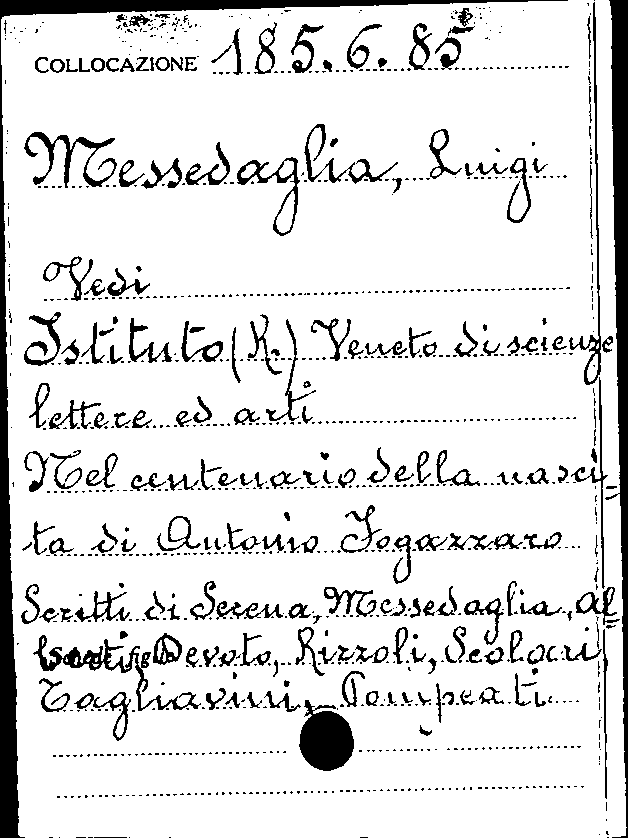 COLLOCAZIONE 185.6.85
Messedaglia, Luigi
Vedi
Istituto (R.) Veneto di scienze
lettere ed arti
Nel centenario della nasci=
ta di Antonio Fogazzaro
Scritti di Serena, Messedaglia, Al=
berti, Devoto, Rizzoli, Scolari,
Tagliavini, Pompeati